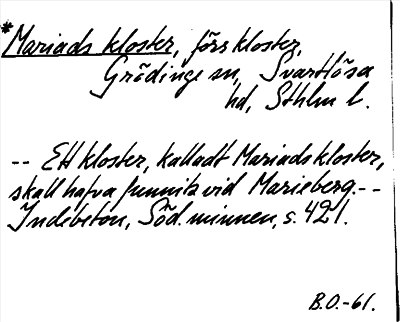 *Mariads kloster, förs kloster,
Grödinge sn, Svartlösa
hd, Sthlm l.
-- Ett kloster, kalladt Mariadskloster,
skall hafva funnits vid Marieberg.--
Indebetou, Söd. minnen, s. 421.
B.O.-61.